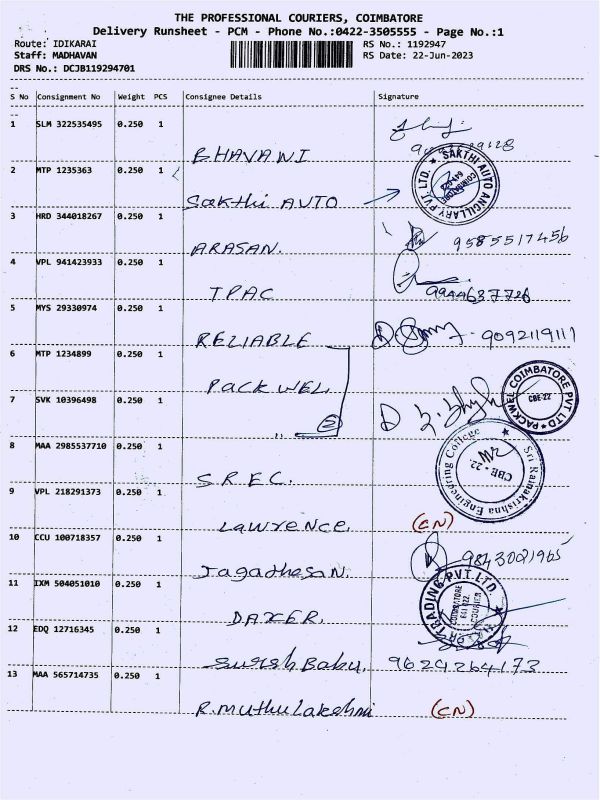 THE PROFESSIONAL COURIERS, COIMBATORE
Delivery Runsheet - PCM - Phone No.:0422-3505555 - Page No.:1
Route: IDIKARAI
RS No.: 1192947
Staff: MADHAVAN
RS Date: 22-Jun-2023
DRS No.: DCJB119294701
S No Consignment No Weight PCS Consignee Details Signature
1 SLM 322535495 0.250 1
BHAVANI
2 MTP 1235363 0.250 1
Sakthi AUTO
SAKTHI AUTO ANCILLARY PVT. LTD.
3 HRD 344018267 0.250 1
ARASAN. 9585517456
4 VPL 941423933 0.250 1
TPAC 9944637726
5 MYS 29330974 0.250 1
RELIABLE 9092119111
6 MTP 1234899 0.250 1
PACKWEL
PACKWEL COIMBATORE PVT LTD
CBE-22
7 SVK 10396498 0.250 1
" 2
8 MAA 2985537710 0.250 1
S.R.E.C.
Sri Ramakrishna Engineering College
CBE - 22
9 VPL 218291373 0.250 1
Lawrence. (CN)
10 CCU 100718357 0.250 1
Jagadhesan. 9843021965
11 IXM 504051010 0.250 1
DAXER.
TRADING PVT. LTD.
COIMBATORE
641 022.
12 EDQ 12716345 0.250 1
Suresh Babu. 9624264173
13 MAA 565714735 0.250 1
R.muthulakshmi (CN)